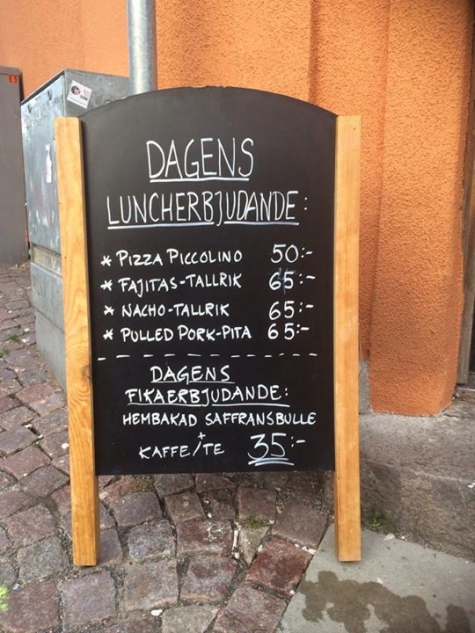 DAGENS
LUNCHERBJUDANDE:
* PIZZA PICCOLINO 50:-
* FAJITAS-TALLRIK 65:-
* NACHO-TALLRIK 65:-
* PULLED PORK-PITA 65:-
DAGENS
FIKAERBJUDANDE:
HEMBAKAD SAFFRANSBULLE
+
KAFFE/TE 35:-